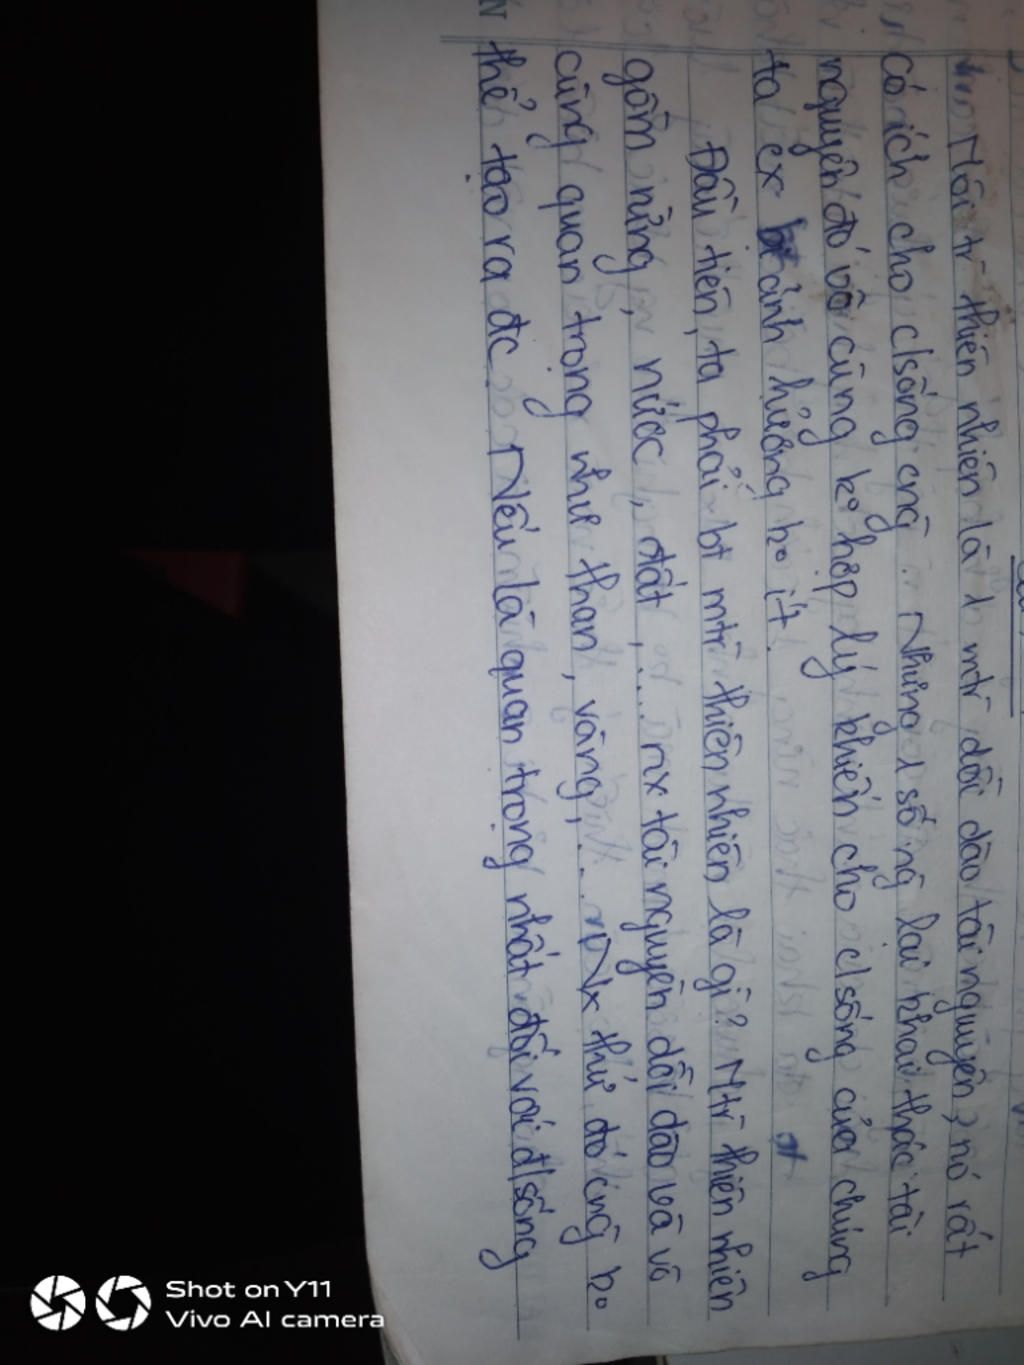 Môi tr̄ thiên nhiên là 1 mtr̄ dồi dào tài nguyên, nó rất
có ích cho c/sống cng̃. Nhưng 1 số ng lại khai thác tài
nguyên đó vô cùng ko hợp lý khiến cho c/sống của chúng
ta ex ảnh hưởng ko ít.
Đầu tiên, ta phải bt mtr̄ thiên nhiên là gì? Mtr̄ thiên nhiên
gồm nừng, nước, đất, ... nx tài nguyên dồi dào và vô
cùng quan trọng như than, vàng, ... Nx thứ đó cng̃ ko
thể tạo ra đc. Nếu là quan trọng nhất đối với đ/sống
Shot on Y11
Vivo AI camera